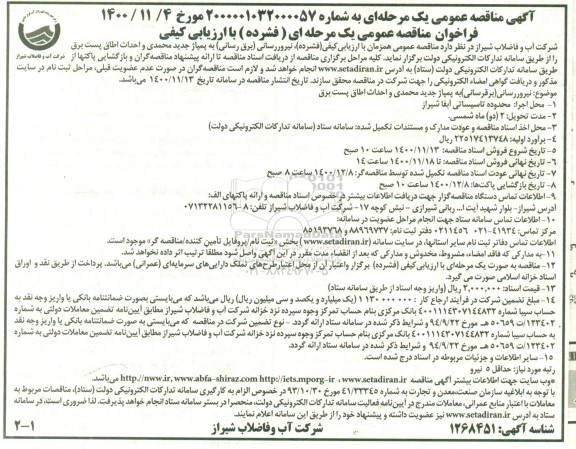 آگهی مناقصه عمومی یک مرحله‌ای به شماره ۲۰۰۰۰۰۱۰۳۲۰۰۰۰۵۷ مورخ ۱۴۰۰/۱۱/۰۴
فراخوان مناقصه عمومی یک مرحله ای ( فشرده ) با ارزیابی کیفی
شرکت آب و فاضلاب شیراز
شرکت آب و فاضلاب شیراز در نظر دارد مناقصه عمومی همزمان با ارزیابی کیفی(فشرده)، نیرورسانی (برق رسانی) به پمپاژ جدید محمدی و احداث اطاق پست برق
را از طریق سامانه تدارکات الکترونیکی دولت برگزار نماید. کلیه مراحل برگزاری مناقصه از دریافت اسناد مناقصه تا ارائه پیشنهاد مناقصه‌گران و بازگشایی پاکتها از
طریق سامانه تدارکات الکترونیکی دولت (ستاد) به آدرس www.setadiran.ir انجام خواهد شد و لازم است مناقصه‌گران در صورت عدم عضویت قبلی، مراحل ثبت نام در سایت
مذکور و دریافت گواهی امضاء الکترونیکی را جهت شرکت در مناقصه محقق سازند. تاریخ انتشار مناقصه در سامانه تاریخ ۱۴۰۰/۱۱/۱۳ می‌باشد.
موضوع: نیرورسانی(برقرسانی)به پمپاژ جدید محمدی و احداث اطاق پست برق
۱- محل اجرا: محدوده تاسیساتی آبفا شیراز
۲- مدت تحویل: ۲(دو) ماه شمسی.
۳- محل اخذ اسناد مناقصه و عودت مدارک و مستندات تکمیل شده: سامانه ستاد (سامانه تدارکات الکترونیکی دولت)
۴- برآورد اولیه: ۲۲۵۱۷۴۱۳۷۴۸ ریال
۵- تاریخ شروع فروش اسناد مناقصه: ۱۴۰۰/۱۱/۱۳ ساعت ۱۰ صبح
۶- تاریخ نهائی فروش اسناد مناقصه: تا ۱۴۰۰/۱۱/۱۸ ساعت ۱۴
۷- تاریخ نهائی عودت اسناد مناقصه تکمیل شده توسط مناقصه‌گر: ۱۴۰۰/۱۲/۸ ساعت ۸ صبح
۸- تاریخ بازگشایی پاکت‌ها: ۱۴۰۰/۱۲/۸ ساعت ۱۰ صبح
۹- اطلاعات تماس دستگاه مناقصه‌گزار جهت دریافت اطلاعات بیشتر در خصوص اسناد مناقصه و ارائه پاکتهای الف:
آدرس شیراز- بلوار شهید آیت ا... ربانی شیرازی - نبش کوچه ۱۷- شرکت آب و فاضلاب شیراز تلفن: ۸-۰۷۱۳۲۲۸۱۱۵۶
۱۰- اطلاعات تماس سامانه ستاد جهت انجام مراحل عضویت در سامانه:
مرکز تماس: ۴۱۹۳۴-۰۲۱ ۰۲۱۱۴۵۶ دفتر ثبت نام: ۸۸۹۶۹۷۳۷ و ۸۵۱۹۳۷۶۸
اطلاعات تماس دفاتر ثبت نام سایر استانها، در سایت سامانه (www.setadiran.ir) بخش «ثبت نام /پروفایل تأمین کننده/مناقصه گر» موجود است.
۱۱-به مدارکی که فاقد امضاء، مشروط، مخدوش و مدارکی که بعد از انقضاء مدت مقرر در این آگهی واصل شود مطلقا ترتیب اثر داده نخواهد شد.
۱۲-مناقصه به صورت یک مرحله‌ای با ارزیابی کیفی (فشرده) برگزار واعتبار آن از محل اعتبار طرح‌های تملک دارایی‌های سرمایه‌ای (عمرانی) می‌باشد. پرداخت از طریق نقد و اوراق
اسناد خزانه اسلامی صورت می گیرد.
۱۳- قیمت اسناد: ۲,۰۰۰,۰۰۰ ریال (واریز وجه اسناد از طریق سامانه ستاد)
۱۴- مبلغ تضمین شرکت در فرآیند ارجاع کار : ۱ ۱۳۰ ۰۰۰ ۰۰۰ (یک میلیارد و یکصد و سی میلیون ریال) ریال می‌باشد که می‌بایستی بصورت ضمانتنامه بانکی یا واریز وجه نقد به
حساب سیبا شماره ۴۰۰۱۱۱۴۳۰۷۱۴۴۸۳۲ بانک مرکزی بنام حساب تمرکز وجوه سپرده نزد خزانه شرکت آب و فاضلاب شیراز مطابق آیین‌نامه تضمین معاملات دولتی به شماره
۱۲۳۴۰۲/ت ۵۰۶۵۹ هـ مورخ ۹۴/۹/۲۲ و شرایط ذکر شده در سامانه ستاد ارائه گردد. - نوع تضمین شرکت در مناقصه که می‌بایستی به صورت ضمانتنامه بانکی یا واریز وجه نقد
به حساب سیبا شماره ۴۰۰۱۱۱۴۳۰۷۱۴۴۸۳۲ بانک مرکزی بنام حساب تمرکز وجوه سپرده نزد خزانه شرکت آب و فاضلاب شیراز مطابق آیین‌نامه تضمین معاملات دولتی به شماره
۱۲۳۴۰۲/ت ۵۰۶۵۹ هـ مورخ ۹۴/۹/۲۲ و شرایط ذکر شده در سامانه ستاد ارائه گردد.
۱۵- سایر اطلاعات و جزئیات مربوطه در اسناد درج شده است.
رتبه مورد نیاز: حداقل ۵ نیرو
*وب سایت جهت اطلاعات بیشتر آگهی مناقصه http://nww.ir, www.abfa-shiraz.com http://iets.mporg-ir ، www.setadiran.ir می‌باشد.
با توجه به ابلاغیه سازمان صنعت،معدن و تجارت به شماره ۴۱/۳۳۳۴۵ مورخ ۹۳/۱۰/۳۰ در خصوص الزام به کارگیری سامانه تدارکات الکترونیکی دولت (ستاد)، مناقصات مربوط به
معاملات با اعتبار منابع عمرانی، معاملات مندرج در آیین‌نامه فعالیت سامانه تدارکات الکترونیکی دولت، منحصرا در بستر سامانه ستاد انجام خواهد پذیرفت. لذا ضروری است، در سامانه
ستاد به آدرس www.setadiran.ir نیز عضویت داشته و پیشنهاد خود را از طریق این سامانه اعلام نمایند.
شناسه آگهی: ۱۲۶۸۴۵۱
شرکت آب و فاضلاب شیراز
۲-۱